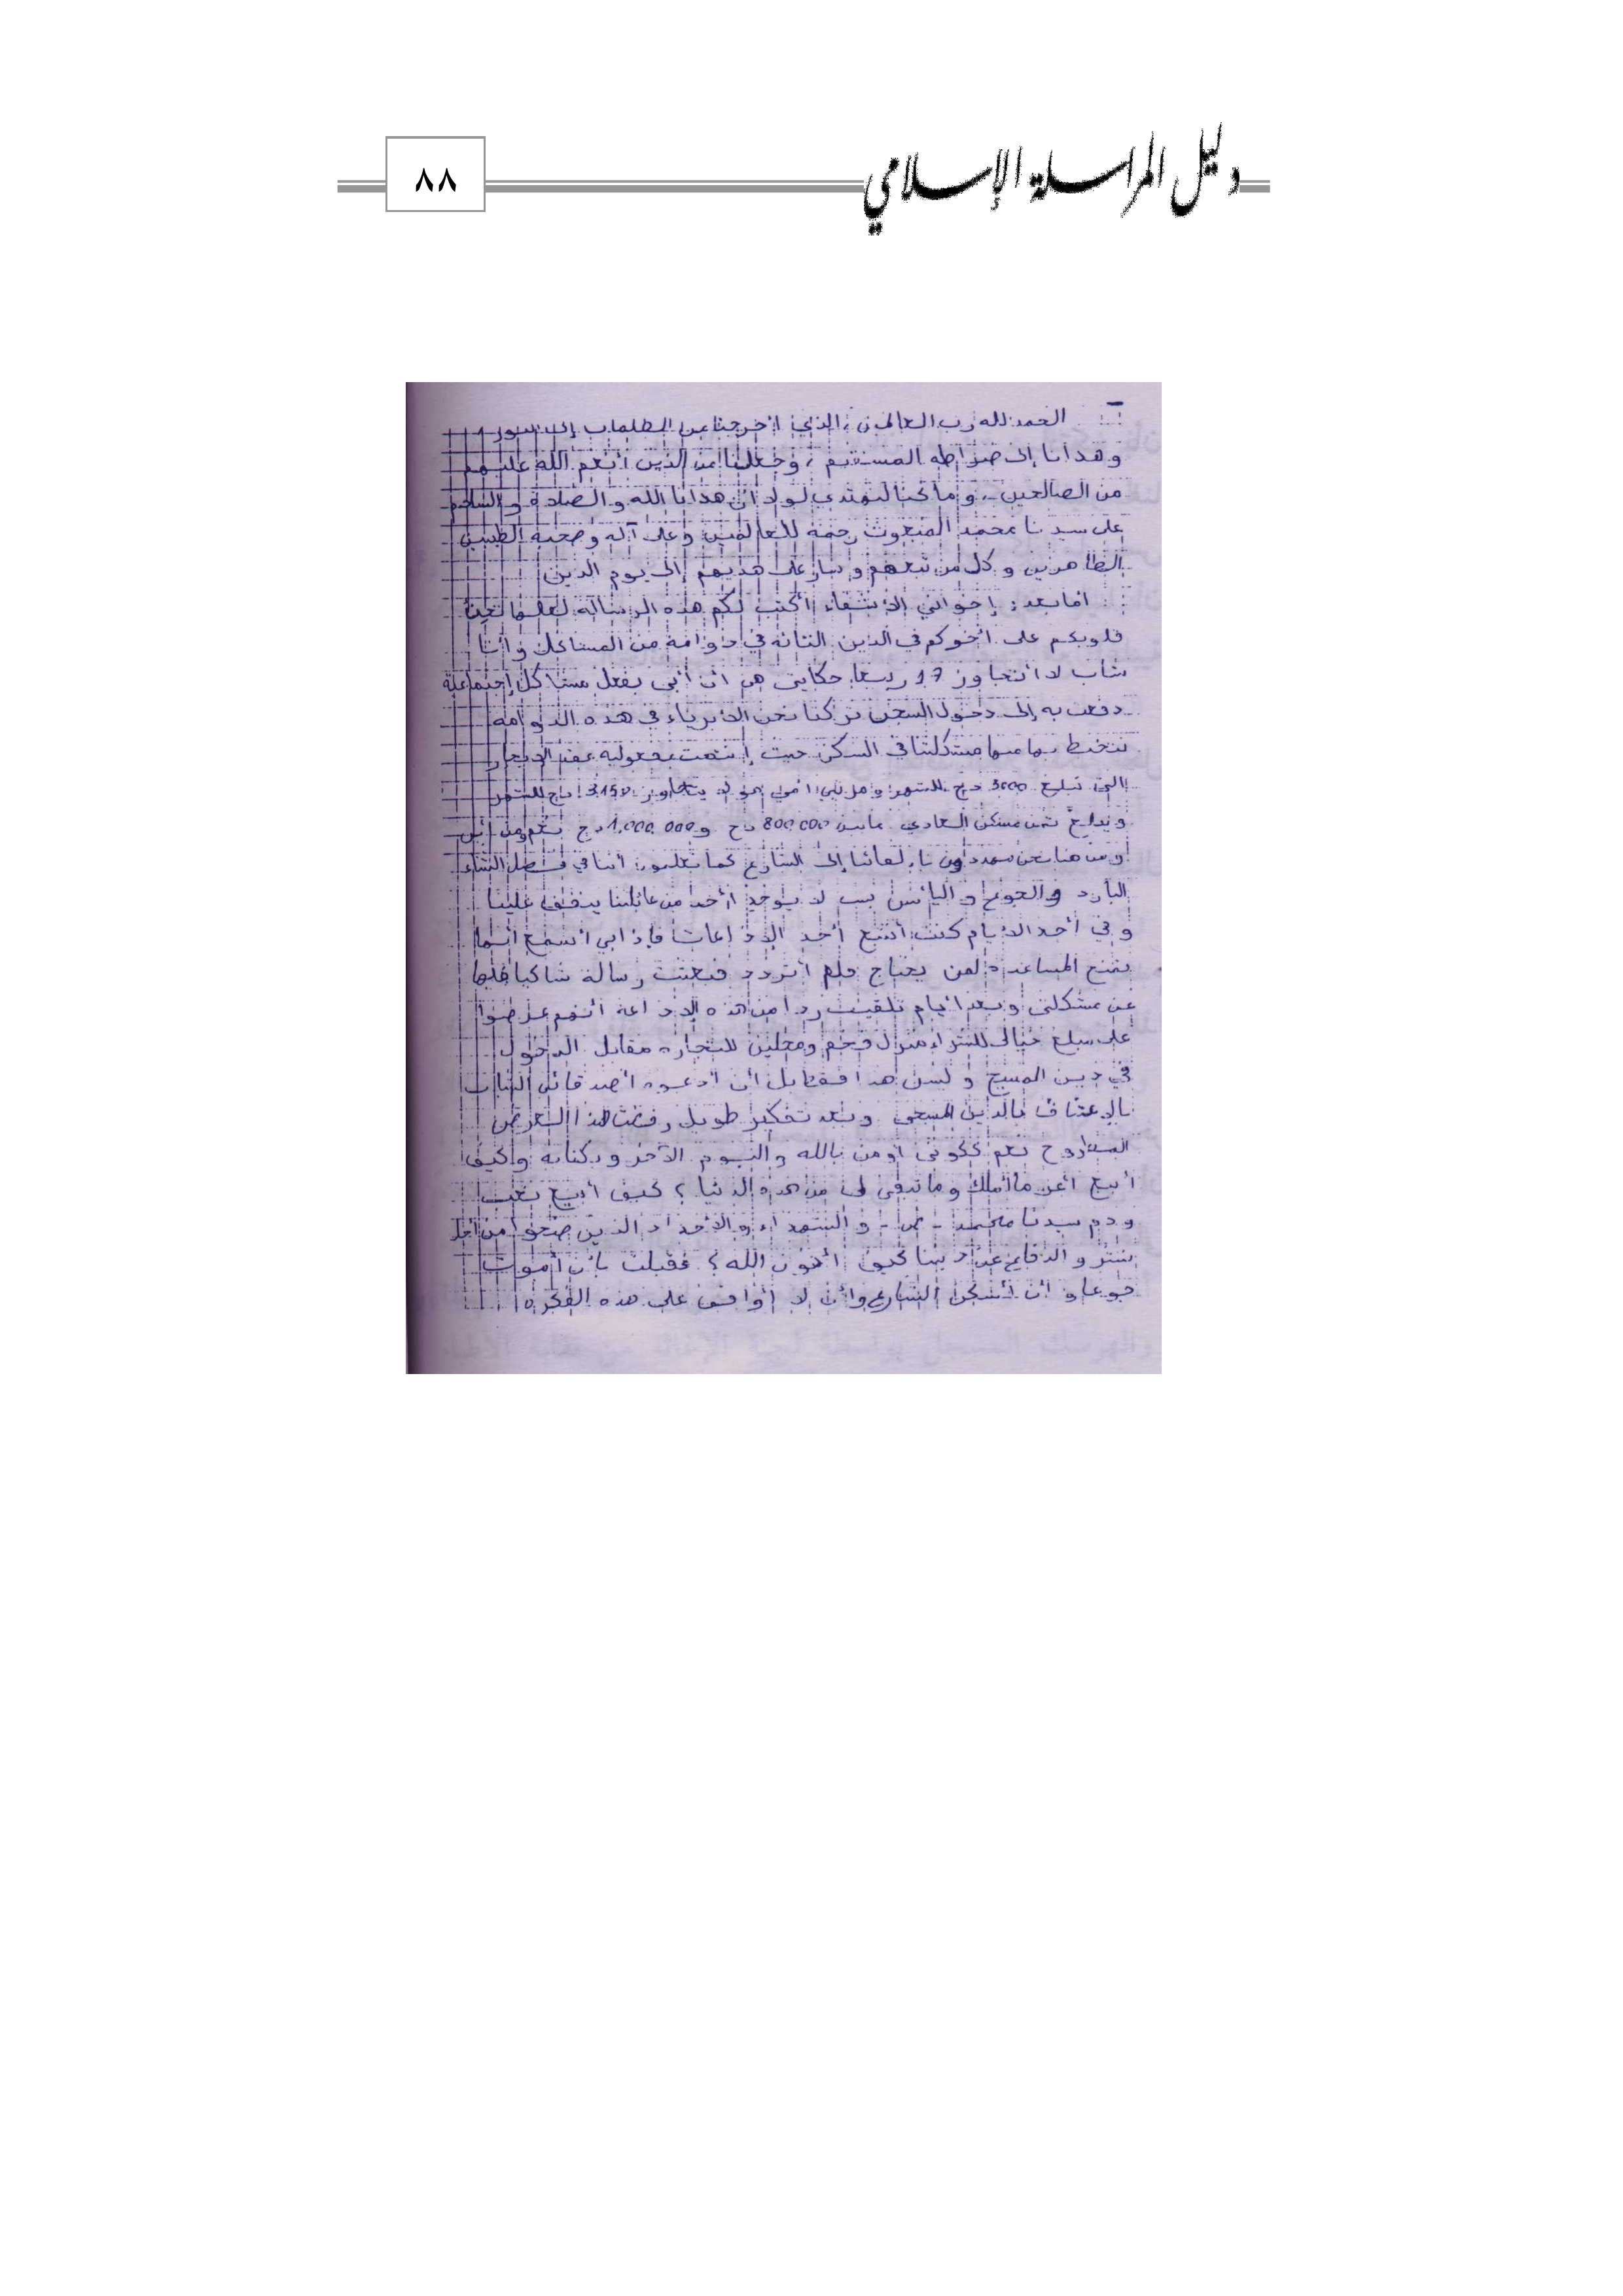 دليل المراسلة الإسلامي
٨٨
الحمد لله رب العالمين، الذي أخرجنا من الظلمات إلى النور،
وهدانا إلى صراطه المستقيم، وجعلنا من الذين أنعم الله عليهم
من الصالحين، وما كنا لنهتدي لولا أن هدانا الله والصلاة والسلام
على سيدنا محمد المبعوث رحمة للعالمين وعلى آله وصحبه الطيبين
الطاهرين وكل من تبعهم وسار على هديهم إلى يوم الدين
أما بعد: إخواني الأشقاء أكتب لكم هذه الرسالة لعلها تحن
قلوبكم على أخوكم في الدين التائه في دوامة من المشاكل وأنا
شاب لا أتجاوز 17 ربيعا. حكايتي هي أن أبي بفعل مشاكل إجتماعية
دفعت به إلى دخول السجن تركنا نحن الأبرياء في هذه الدوامة
نتخبط بها منها مشكلتنا في السكن حيث إنتهت مفعولية عقد الإيجار
التي تبلغ 3000 دج للشهر ومرتبي أمي لا يتجاوز 3150 دج للشهر
ويبلغ ثمن مسكن العادي مابين 800 000 دج و 1.000 000 دج نعم ومن أين
ومن هنا نحن مهددون بإلقائنا إلى الشارع كما تعلمون أننا في فصل الشتاء
البارد والجوع واليأس لا يوجد أحد من عائلتنا ينفق علينا
وفي أحد الأيام كنت أتتبع أحد الإذاعات فإذا بي أسمع أنها
تمنح المساعدة لمن يحتاج فلم أتردد فبعثت رسالة شاكيا فيها
عن مشكلتي وبعد أيام تلقيت ردا من هذه الإذاعة أنهم عرضوا
علي مبلغ خيالي للشراء منزل فخم ومحلين للتجارة مقابل الدخول
في دين المسيح وليس هذا فمقابل أن أدعوه أصدقائي الشباب
بالإعتناق بالدين المسيحي وبعد تفكير طويل رفضت هذا العرض
نعم ككوني أومن بالله واليوم الآخر وبكتابه وكيف
أبيع أعز ما أملك وما تبقى لي من هذه الدنيا؟ كيف أبيع تعب
ودم سيدنا محمد - ص - والشهداء والأجداد الذين ضحوا من أجل
نشر والدفاع عن ديننا كيف أخون الله؟ فقبلت بأن أموت
جوعا و أن أسكن الشارع وأن لا أوافق على هذه الفكرة